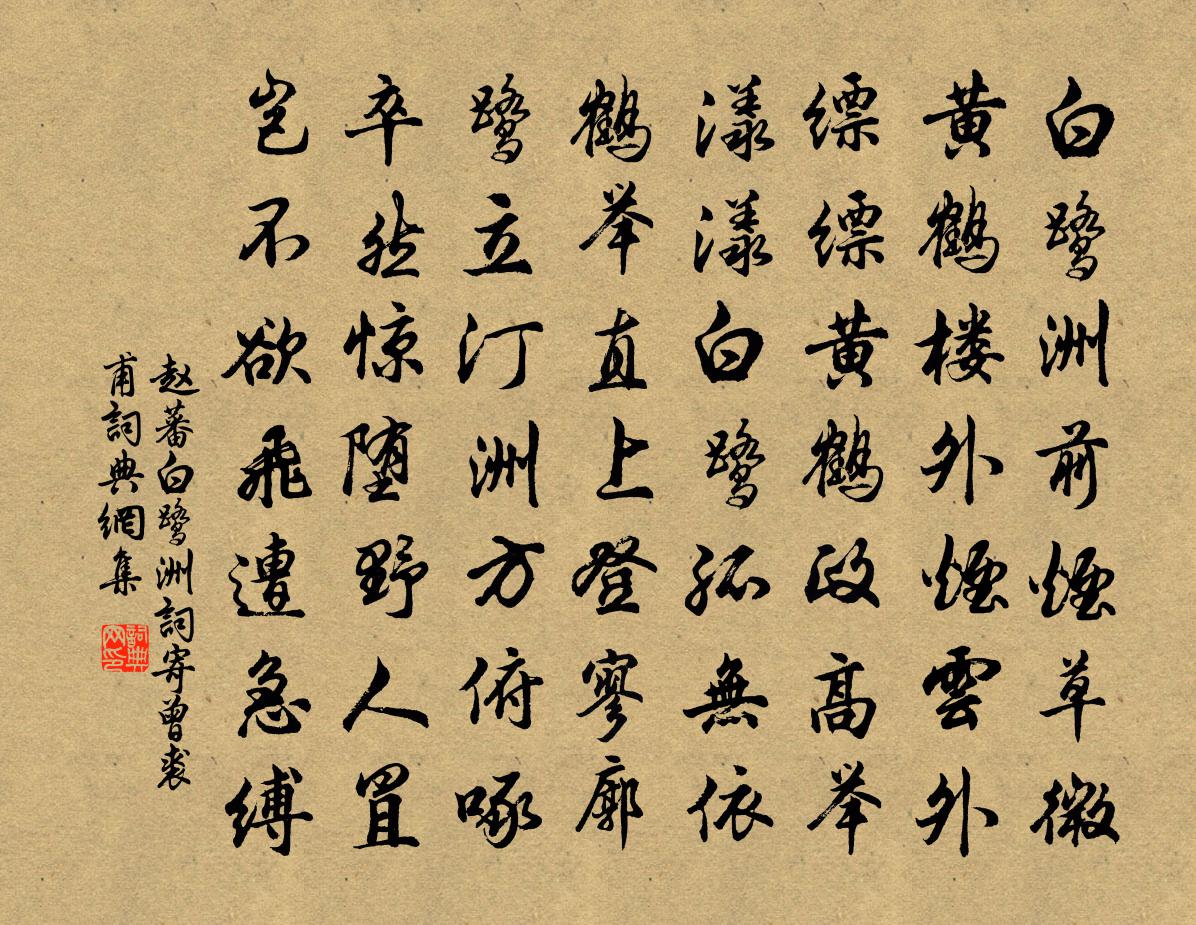 白鹭洲前煙草微
黄鹤楼外煙雲外
缥缥黄鹤政高举
漾漾白鹭孤無依
鹤举直上登寥廓
鹭立汀洲方俯啄
卒然惊堕野人罝
岂不欲飛遭急缚
赵蕃白鹭洲詞寄曾裘
甫詞典網集
詞典网印